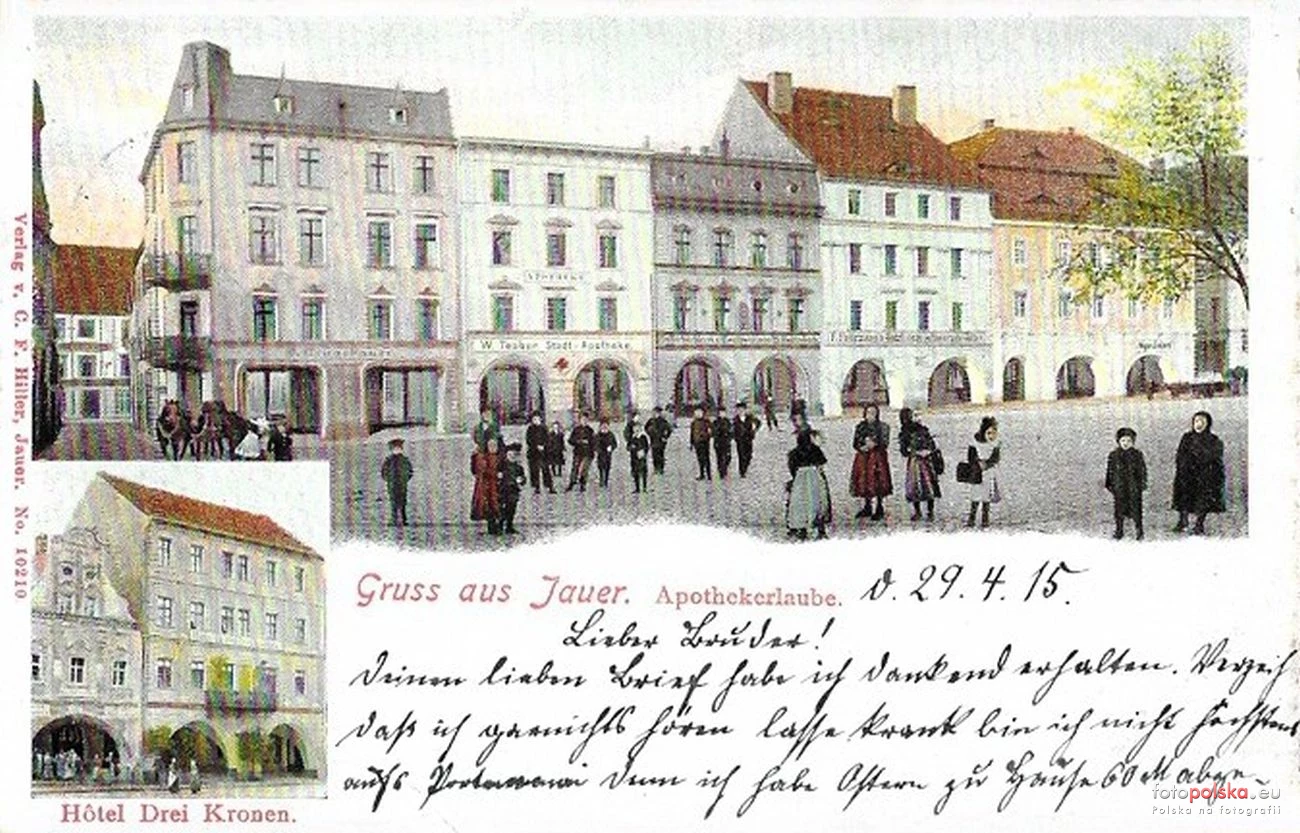 APOTHEKE
W. Teuber Stadt-Apotheke
Verlag v. C. F. Hiller, Jauer. No. 10210
Gruss aus Jauer. Apothekerlaube.
d. 29. 4. 15.
Lieber Bruder!
Deinen lieben Brief habe ich dankend erhalten. Verzeih
daß ich garnichts hören lasse krank bin ich nicht höchstens
aufs denn ich habe Ostern zu Hause 60 M abge-
Hôtel Drei Kronen.
fotopolska.eu
Polska na fotografii